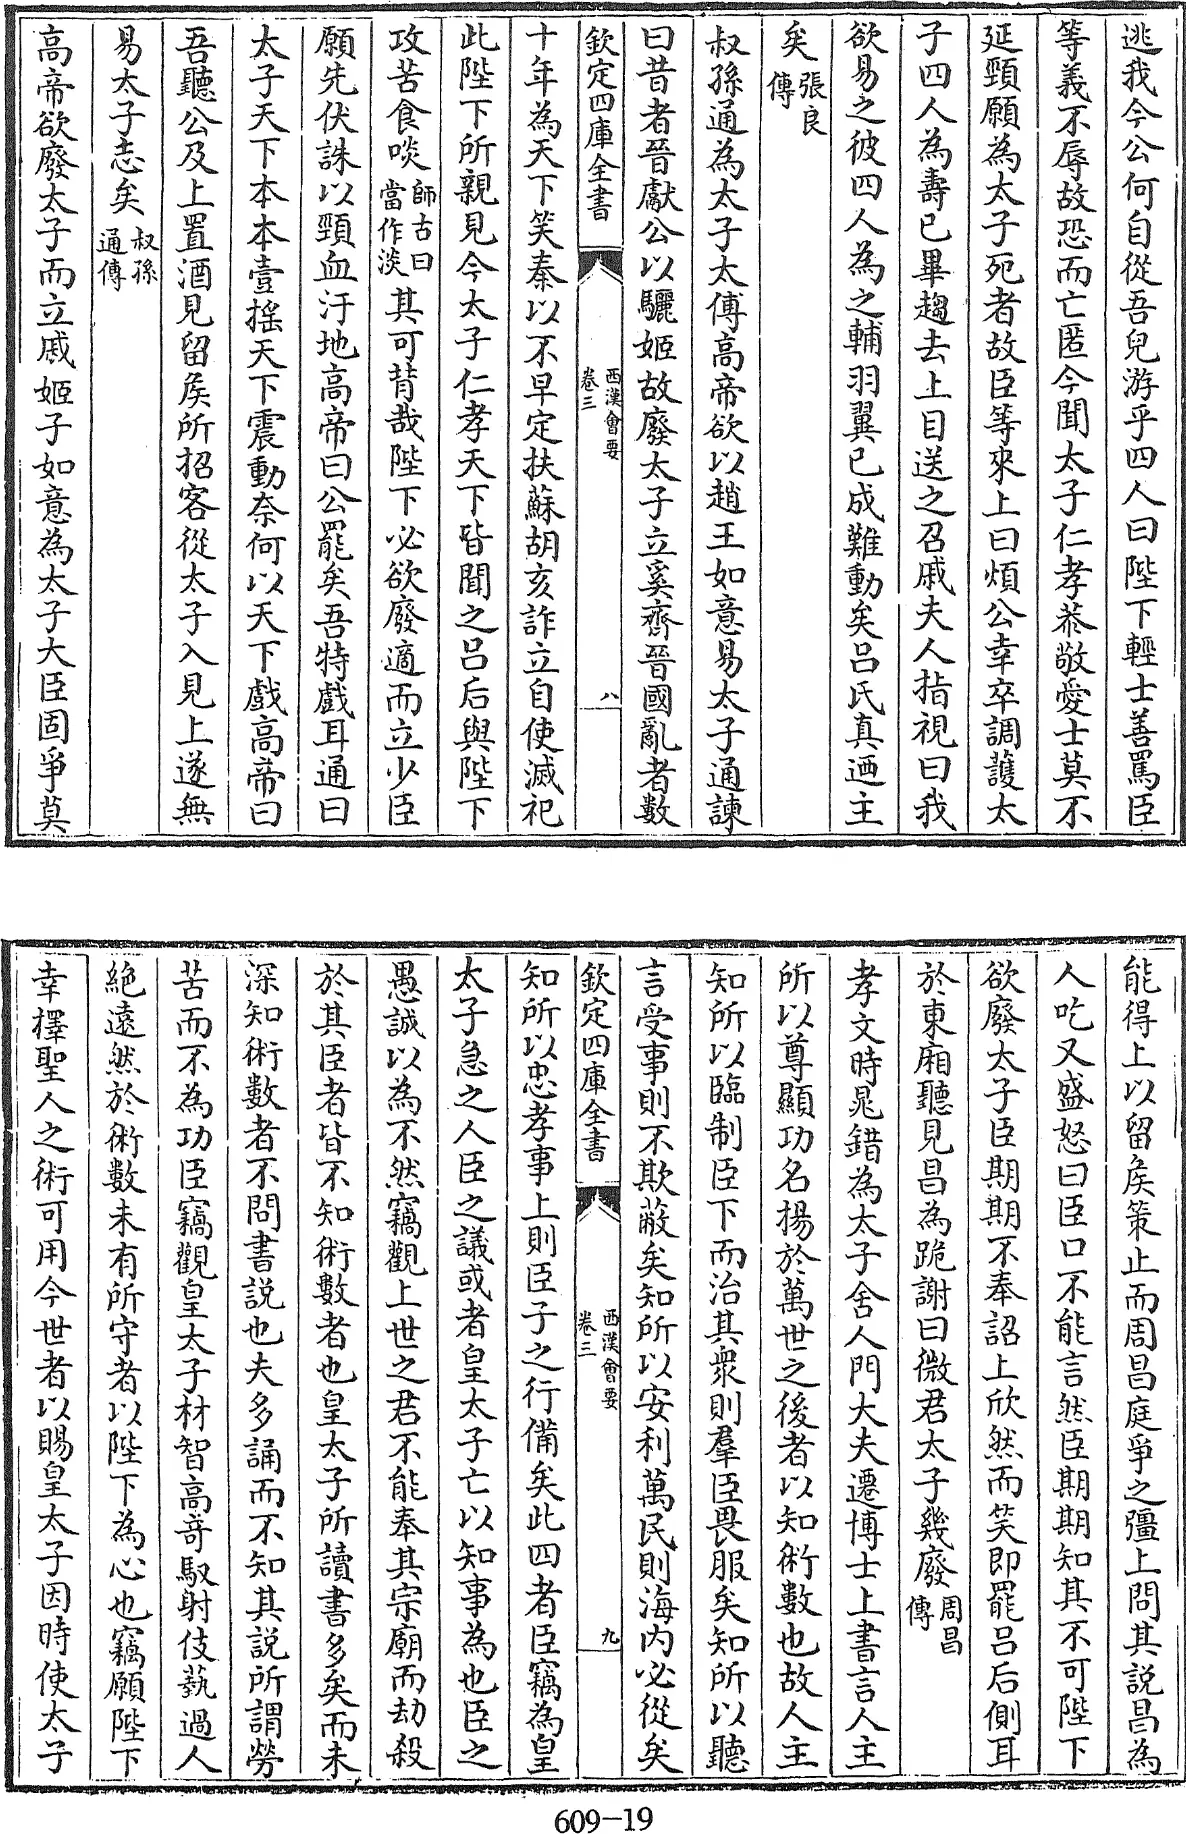 逃我今公何自從吾兒游乎四人曰陛下輕士善罵臣
等義不辱故恐而亡匿今聞太子仁孝恭敬愛士莫不
延頸願為太子死者故臣等來上曰煩公幸卒調護太
子四人為壽已畢趨去上目送之召戚夫人指視曰我
欲易之彼四人為之輔羽翼已成難動矣呂氏真迺主
矣張良傳
叔孫通為太子太傅高帝欲以趙王如意易太子通諫
曰昔者晉獻公以驪姬故廢太子立奚齊晉國亂者數
欽定四庫全書
西漢會要
卷三
八
十年為天下笑秦以不早定扶蘇胡亥詐立自使滅祀
此陛下所親見今太子仁孝天下皆聞之呂后與陛下
攻苦食啖師古曰當作淡其可背哉陛下必欲廢適而立少臣
願先伏誅以頸血汙地高帝曰公罷矣吾特戲耳通曰
太子天下本本壹搖天下震動奈何以天下戲高帝曰
吾聽公及上置酒見留侯所招客從太子入見上遂無
易太子志矣叔孫通傳
高帝欲廢太子而立戚姬子如意為太子大臣固爭莫
能得上以留侯策止而周昌庭爭之彊上問其説昌為
人吃又盛怒曰臣口不能言然臣期期知其不可陛下
欲廢太子臣期期不奉詔上欣然而笑即罷呂后側耳
於東廂聽見昌為跪謝曰微君太子幾廢周昌傳
孝文時晁錯為太子舍人門大夫遷博士上書言人主
所以尊顯功名揚於萬世之後者以知術數也故人主
知所以臨制臣下而治其衆則羣臣畏服矣知所以聽
言受事則不欺蔽矣知所以安利萬民則海內必從矣
欽定四庫全書
西漢會要
卷三
九
知所以忠孝事上則臣子之行備矣此四者臣竊為皇
太子急之人臣之議或者皇太子亡以知事為也臣之
愚誠以為不然竊觀上世之君不能奉其宗廟而劫殺
於其臣者皆不知術數者也皇太子所讀書多矣而未
深知術數者不問書説也夫多誦而不知其説所謂勞
苦而不為功臣竊觀皇太子材智高奇馭射伎藝過人
絶遠然於術數未有所守者以陛下為心也竊願陛下
幸擇聖人之術可用今世者以賜皇太子因時使太子
609-19